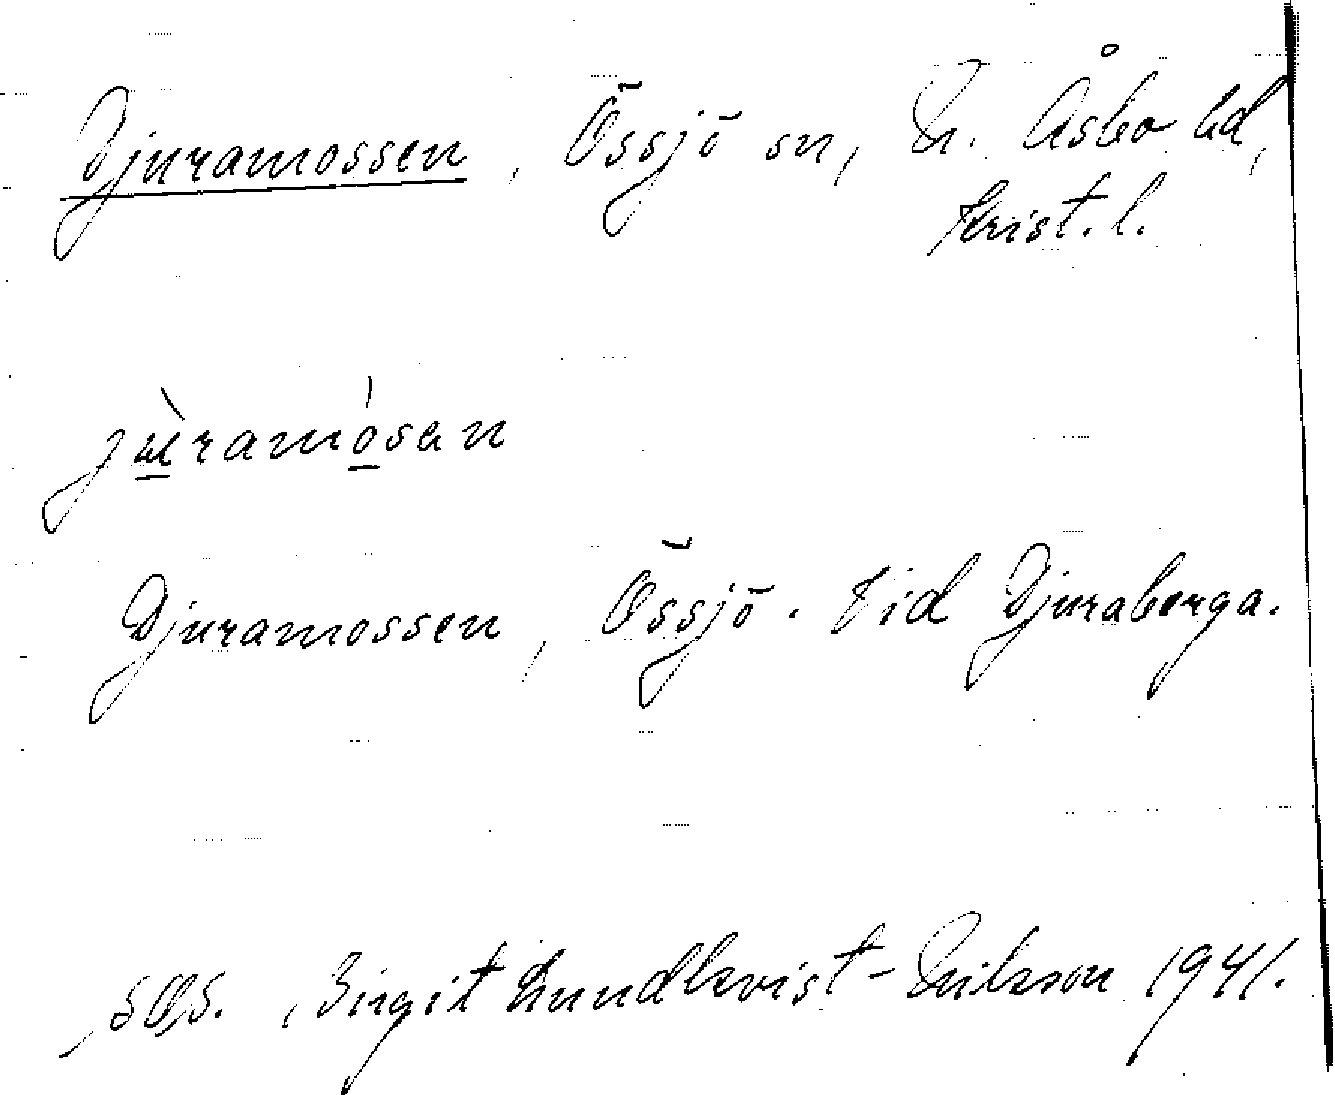 Djuramossen, Össjö sn, N. Åsbo hd,
Krist. l.
jùramósan
Djuramossen, Össjö. Vid Djuraberga.
SOS. Birgit Lundkvist-Nilsson 1941.